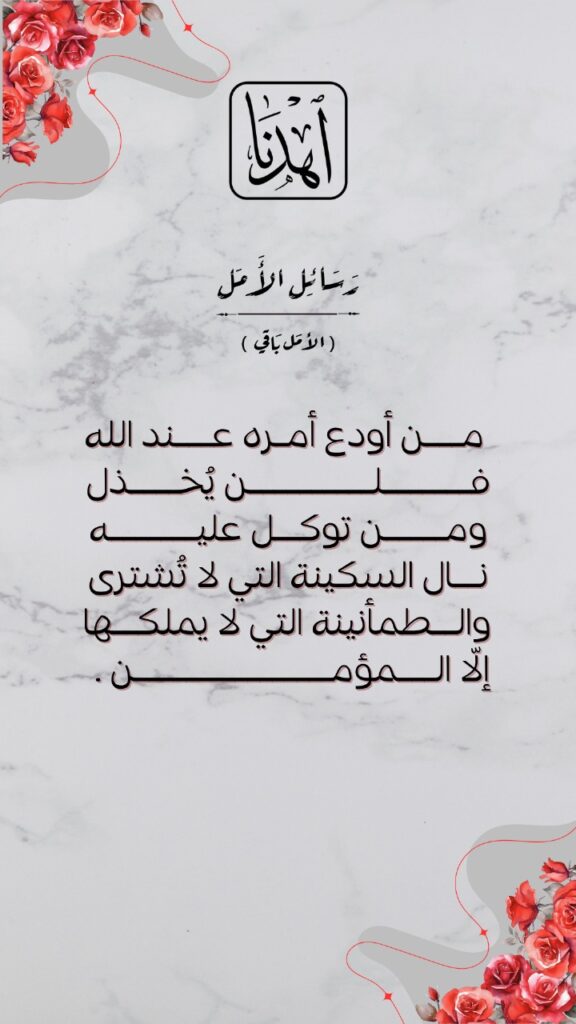 اهدنا
رَسَائِل الأَمَل
( الأمَل بَاقي )
مـن أودع أمـره عـند الله
فـلـن يُخـذل
ومـن توكـل عليـه
نـال السكينة التي لا تُشترى
والـطمأنينة التي لا يملكـها
إلّا الـمؤمـن .